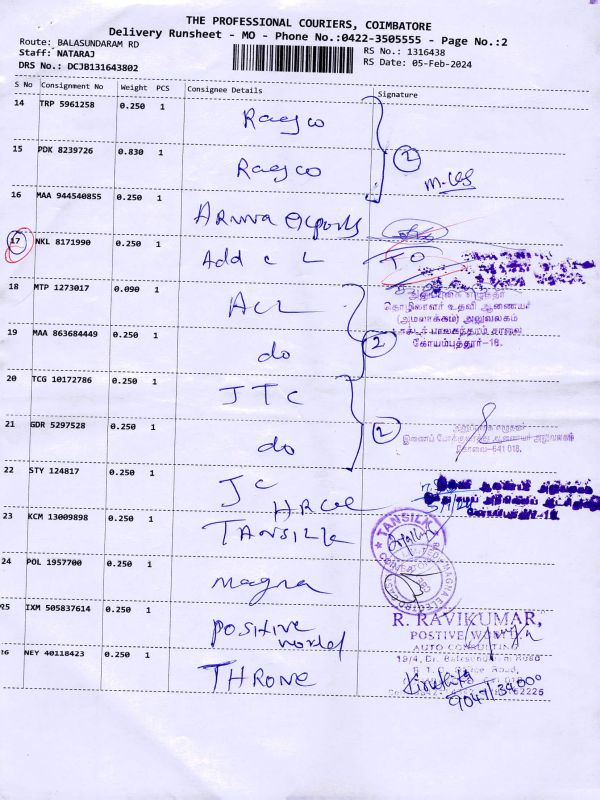 THE PROFESSIONAL COURIERS, COIMBATORE
Delivery Runsheet - MO - Phone No.:0422-3505555 - Page No.:2
Route: BALASUNDARAM RD
RS No.: 1316438
Staff: NATARAJ
RS Date: 05-Feb-2024
DRS No.: DCJB131643802
S No Consignment No Weight PCS Consignee Details Signature
14 TRP 5961258 0.250 1 Raegco
15 PDK 8239726 0.830 1 Raegco
2
16 MAA 944540855 0.250 1 Aruna exports
17 NKL 8171990 0.250 1 Add c L TO
18 MTP 1273017 0.090 1 ACL
தொழிலாளர் உதவி ஆணையர்
(அமலாக்கம்) அலுவலகம்
டாக்டர் பாலசுந்தரம் சாலை
கோயம்புத்தூர்-18.
19 MAA 863684449 0.250 1 do
2
20 TCG 10172786 0.250 1 JTC
21 GDR 5297528 0.250 1 do
2
இணைப் போக்குவரத்து ஆணையர் அலுவலகம்
கோவை-641 018.
22 STY 124817 0.250 1 JC
HRCE
23 KCM 13009898 0.250 1 TANSILK
TANSILK
24 POL 1957700 0.250 1 magna
25 IXM 505837614 0.250 1 positive world
R. RAVIKUMAR,
AUTO CONSULTING
26 NEY 40118423 0.250 1 THRONE